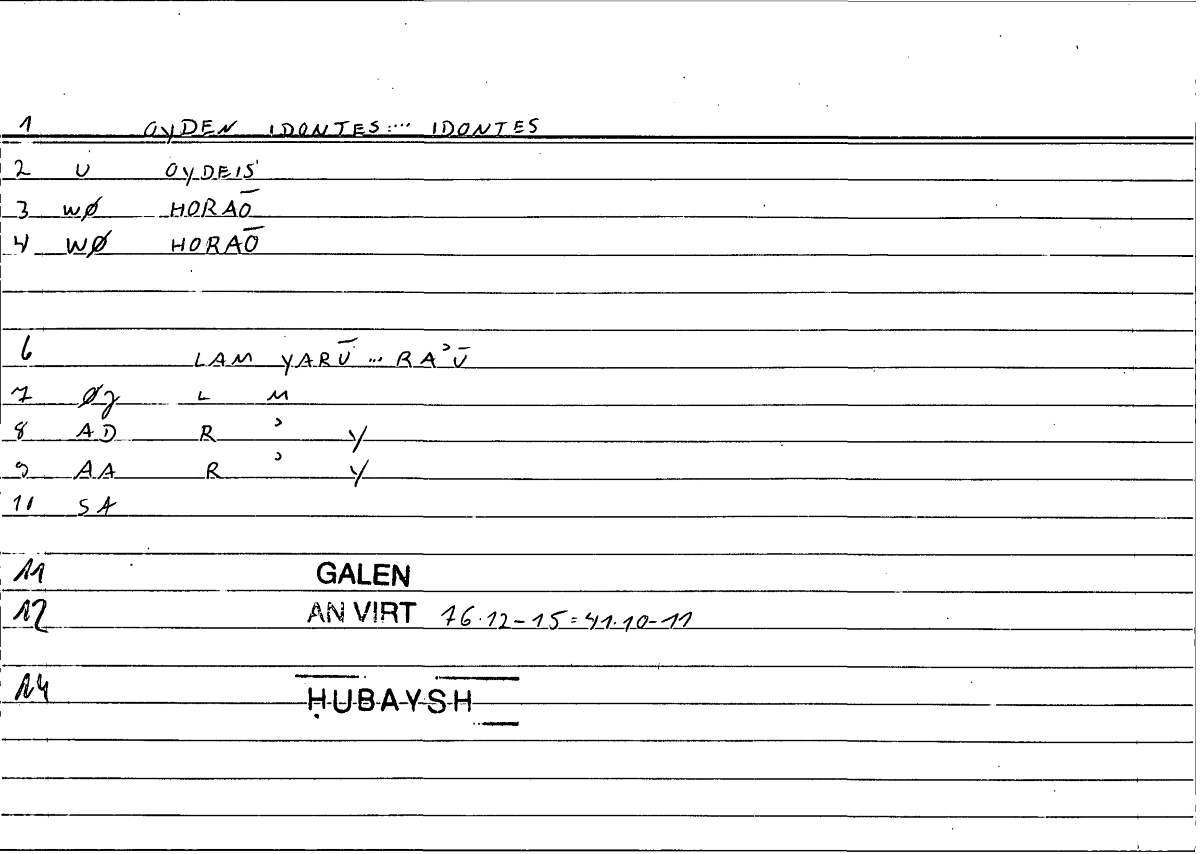 1 OYDEN IDONTES.... IDONTES
2 U OYDEIS
3 WØ HORAŌ
4 WØ HORAŌ
6 LAM YARŪ ... RA'Ū
7 ØZ L M
8 AD R ' Y
9 AA R ' Y
10 SA
11 GALEN
12 AN VIRT 76.12-15=41.10-11
14 ḤUBAYSH